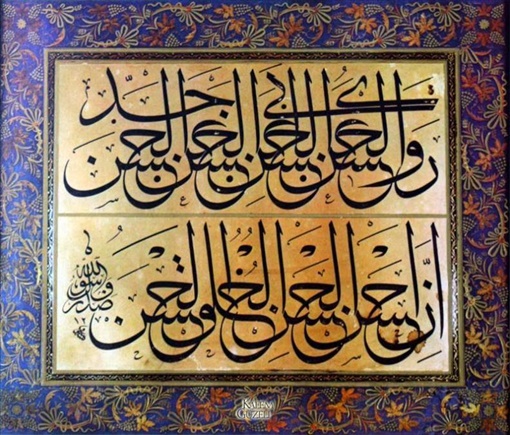 روى الحسن عن الحسن عن ابى الحسن عن جدّ الحسن
انّ احسن الحسن الخلق الحسن
صدق رسول الله
KALEM
GÜZELİ